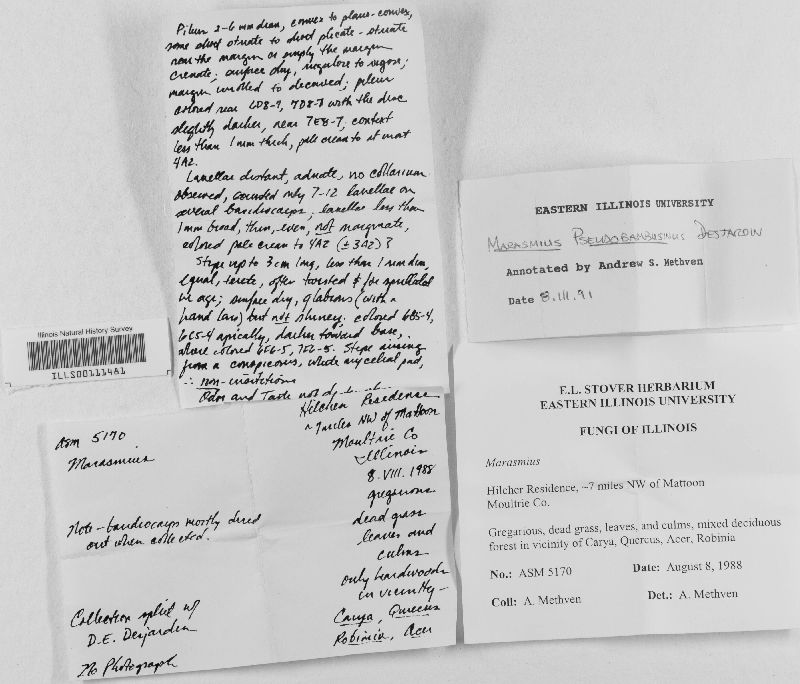 Pileus 2-6 mm diam, convex to plano-convex,
some short striate to short plicate-striate
near the margin or simply the margin
crenate; surface dry, rugulose to rugose;
margin inrolled to decurved; pileus
colored near 6D8-7, 7D8-7 with the disc
slightly darker, near 7E8-7; context
less than 1 mm thick, pale cream to at most
4A2.
Lamellae distant, adnate, no collarium
observed, counted only 7-12 lamellae on
several basidiocarps; lamellae less than
1 mm broad, thin, even, not marginate,
colored pale cream to 4A2 (± 3A2)?
Stipe up to 3 cm long, less than 1 mm diam,
equal, terete, often twisted &/or
in age; surface dry, glabrous (with a
hand lens) but not shiney; colored 6B5-4,
6C5-4 apically, darker toward base,
above colored 6E6-5, 7E6-5. Stipe arising
from a conspicuous, white mycelial pad,
∴ non-insititious
Odor and Taste not
Illinois Natural History Survey
ILLS00111481
EASTERN ILLINOIS UNIVERSITY
MARASMIUS PSEUDOBAMBUSINUS DESJARDIN
Annotated by Andrew S. Methven
Date 8.III.91
ASM 5170
Marasmius
Note - basidiocarps mostly dried
out when collected.
Collection split w/
D.E. Desjardin
No Photograph
Hilcher Residence
~ 7 miles NW of Mattoon
Moultrie Co
Illinois
8.VIII.1988
gregarious
dead grass
leaves and
culms
only hardwoods
in vicinity -
Carya, Quercus
Robinia, Acer
E.L. STOVER HERBARIUM
EASTERN ILLINOIS UNIVERSITY
FUNGI OF ILLINOIS
Marasmius
Hilcher Residence, ~7 miles NW of Mattoon
Moultrie Co.
Gregarious, dead grass, leaves, and culms, mixed deciduous
forest in vicinity of Carya, Quercus, Acer, Robinia
No.: ASM 5170 Date: August 8, 1988
Coll: A. Methven Det.: A. Methven